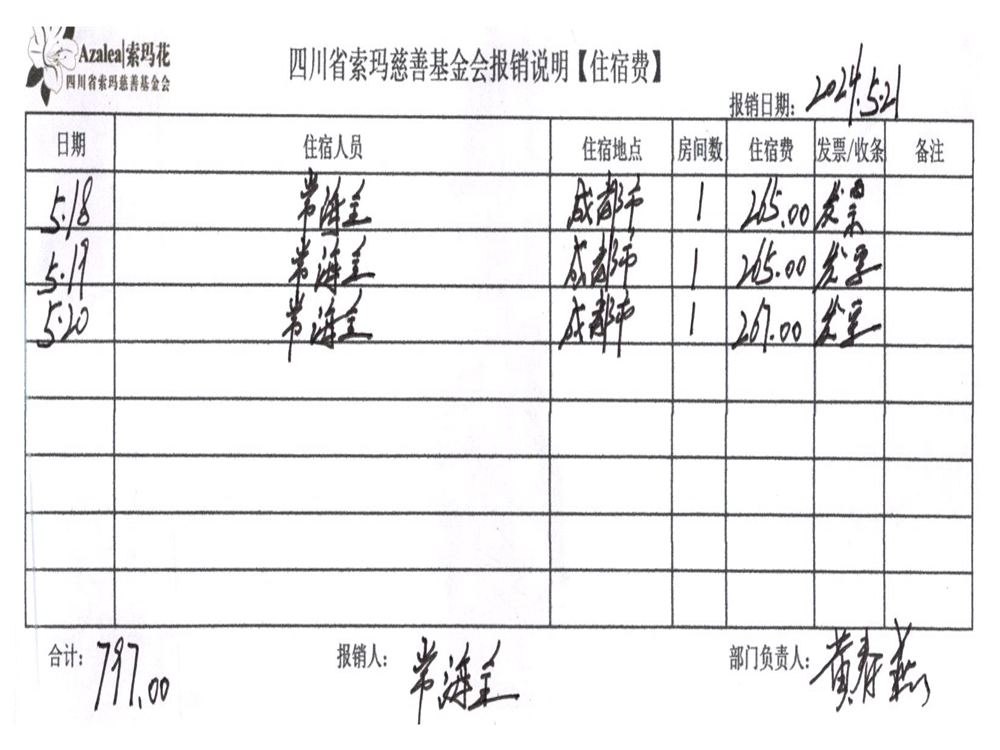 Azalea|索玛花
四川省索玛慈善基金会
四川省索玛慈善基金会报销说明【住宿费】
报销日期: 2024.5.21
日期 住宿人员 住宿地点 房间数 住宿费 发票/收条 备注
5.18 常海全 成都市 1 265.00 发票
5.19 常海全 成都市 1 265.00 发票
5.20 常海全 成都市 1 267.00 发票
合计: 797.00 报销人: 常海全 部门负责人: 黄春燕